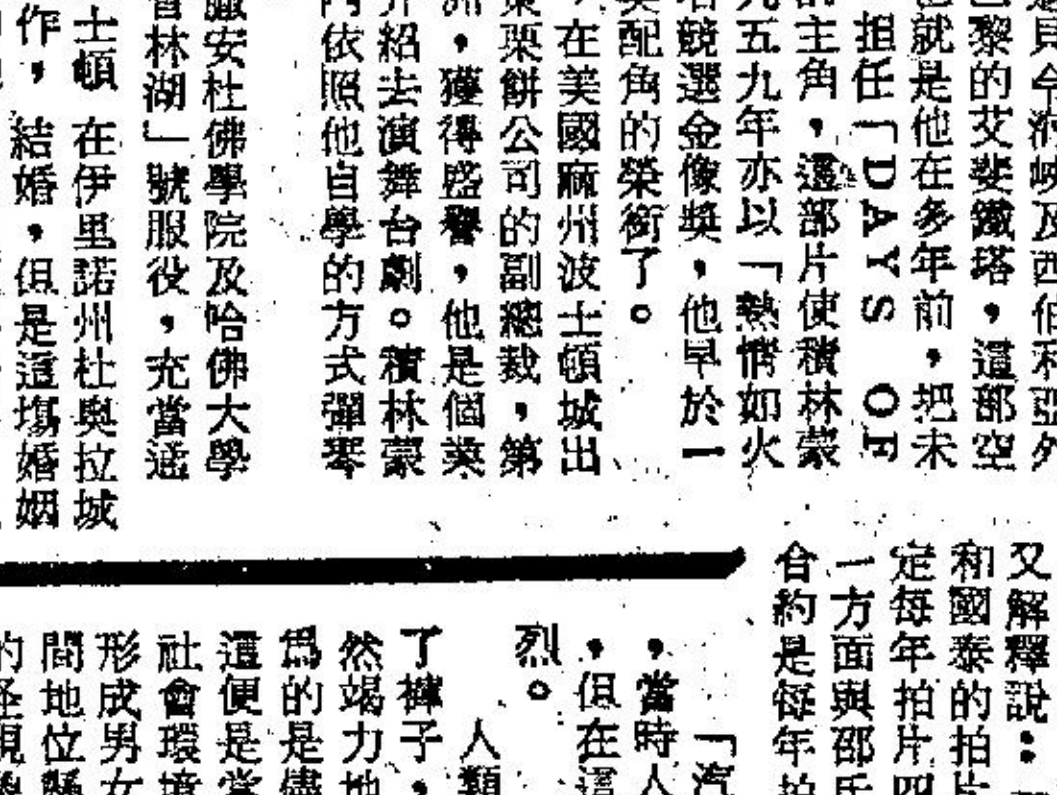 見令河峽及西伯利亞外
巴黎的艾斐鐵塔，這部空
也就是他在多年前，把未
担任「DAYS OF
的主角，這部片使積林蒙
九五九年亦以「熱情如火
競選金像獎，他早於一
配角的榮銜了。
，在美國麻州波士頓城出
栗餅公司的副總裁，第
洲，獲得盛譽，他是個業
介紹去演舞台劇。積林蒙
內依照他自學的方式彈琴
臘安杜佛學院及哈佛大學
林湖」號服役，充當通
士頓 在伊里諾州杜奧拉城
作，結婚，但是這塲婚姻
又解釋說：
和國泰的拍片
定每年拍片四
一方面與邵氏
合約是每年拍
「汽
，當時人
，但在這
烈。
人類
了褲子，
然竭力地
爲的是儘
這便是當
社會環境
形成男女
間地位懸
的怪現